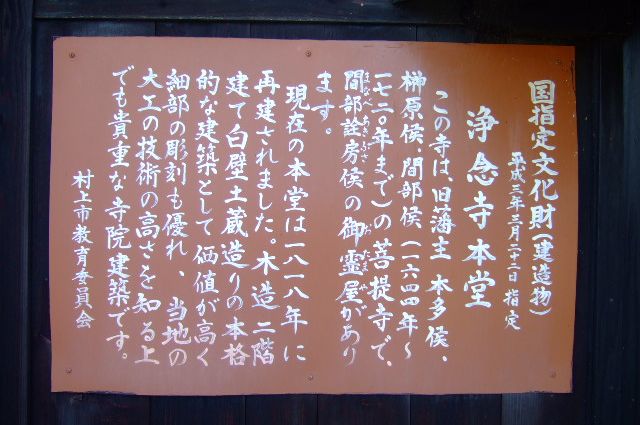 国指定文化財(建造物)
平成三年三月二十二日 指定
浄念寺本堂
この寺は、旧藩主 本多侯、
榊原侯、間部侯(一六四四年～
一七二〇年まで)の菩提寺で、
間部詮房侯の御霊屋があり
まなべあきふさ お たま や
ます。
現在の本堂は一八一八年に
再建されました。木造二階
建て白壁土蔵造りの本格
的な建築として価値が高く
細部の彫刻も優れ、当地の
大工の技術の高さを知る上
でも貴重な寺院建築です。
村上市教育委員会